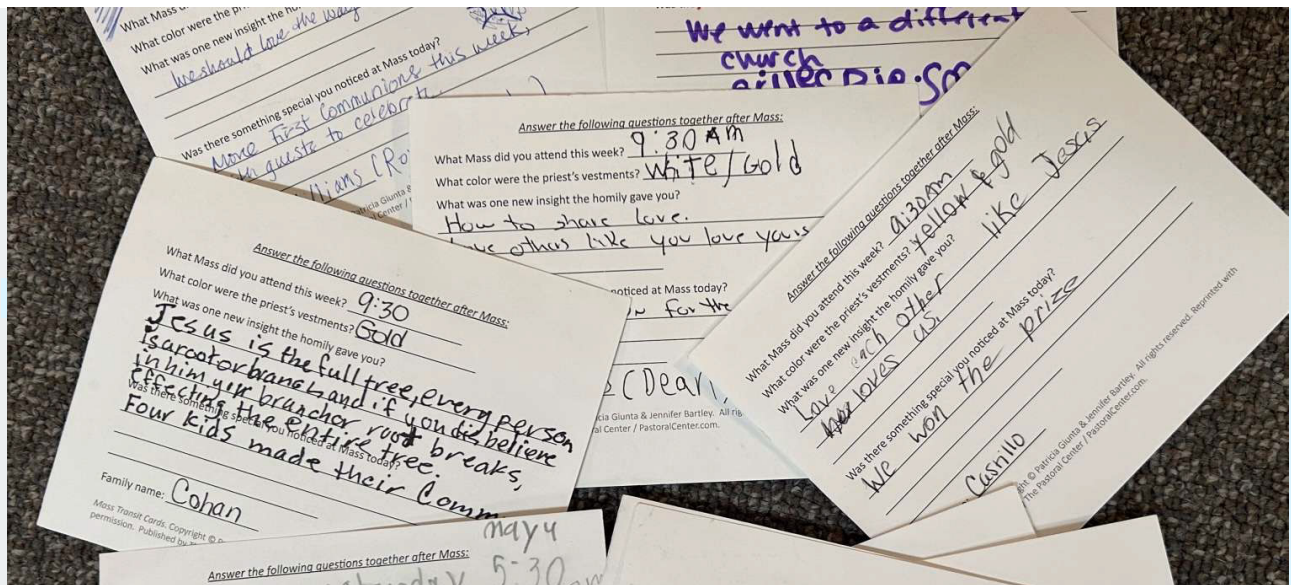 What Mass
What color were the pr
What was one new insight the ho
We should love the way
Was there something special you noticed at Mass today?
More First Communions this week,
guests to celebrate
llians (Ro
atricia Giunta &
al Center /
We went to a different
church
Answer the following questions together after Mass:
What Mass did you attend this week? 9:30 AM
What color were the priest's vestments? White/Gold
What was one new insight the homily gave you?
How to share love.
love others like you love yours
noticed at Mass today?
for the
(Dear,
cia Giunta & Jennifer Bartley. All rig
al Center / PastoralCenter.com.
Answer the following questions together after Mass:
What Mass did you attend this week? 9:30
What color were the priest's vestments? Gold
What was one new insight the homily gave you?
Jesus is the full tree, every person
is a root or branch, and if you disbelieve
in him your branch or root breaks,
effecting the entire tree.
Was there something special you noticed at Mass today?
Four kids made their Comm
Family name: Cohan
Mass Transit Cards. Copyright ©
permission. Published by
Answer the following questions together after Mass:
What Mass did you attend this week? 9:30AM
What color were the priest's vestments? yellow & gold
What was one new insight the homily gave you?
Love each other like Jesus
loves us.
Was there something special you noticed at Mass today?
We won the prize
Castillo
ght © Patricia Giunta & Jennifer Bartley. All rights reserved. Reprinted with
The Pastoral Center / PastoralCenter.com.
may 4
Answer the following questions together after Mass:
5:30